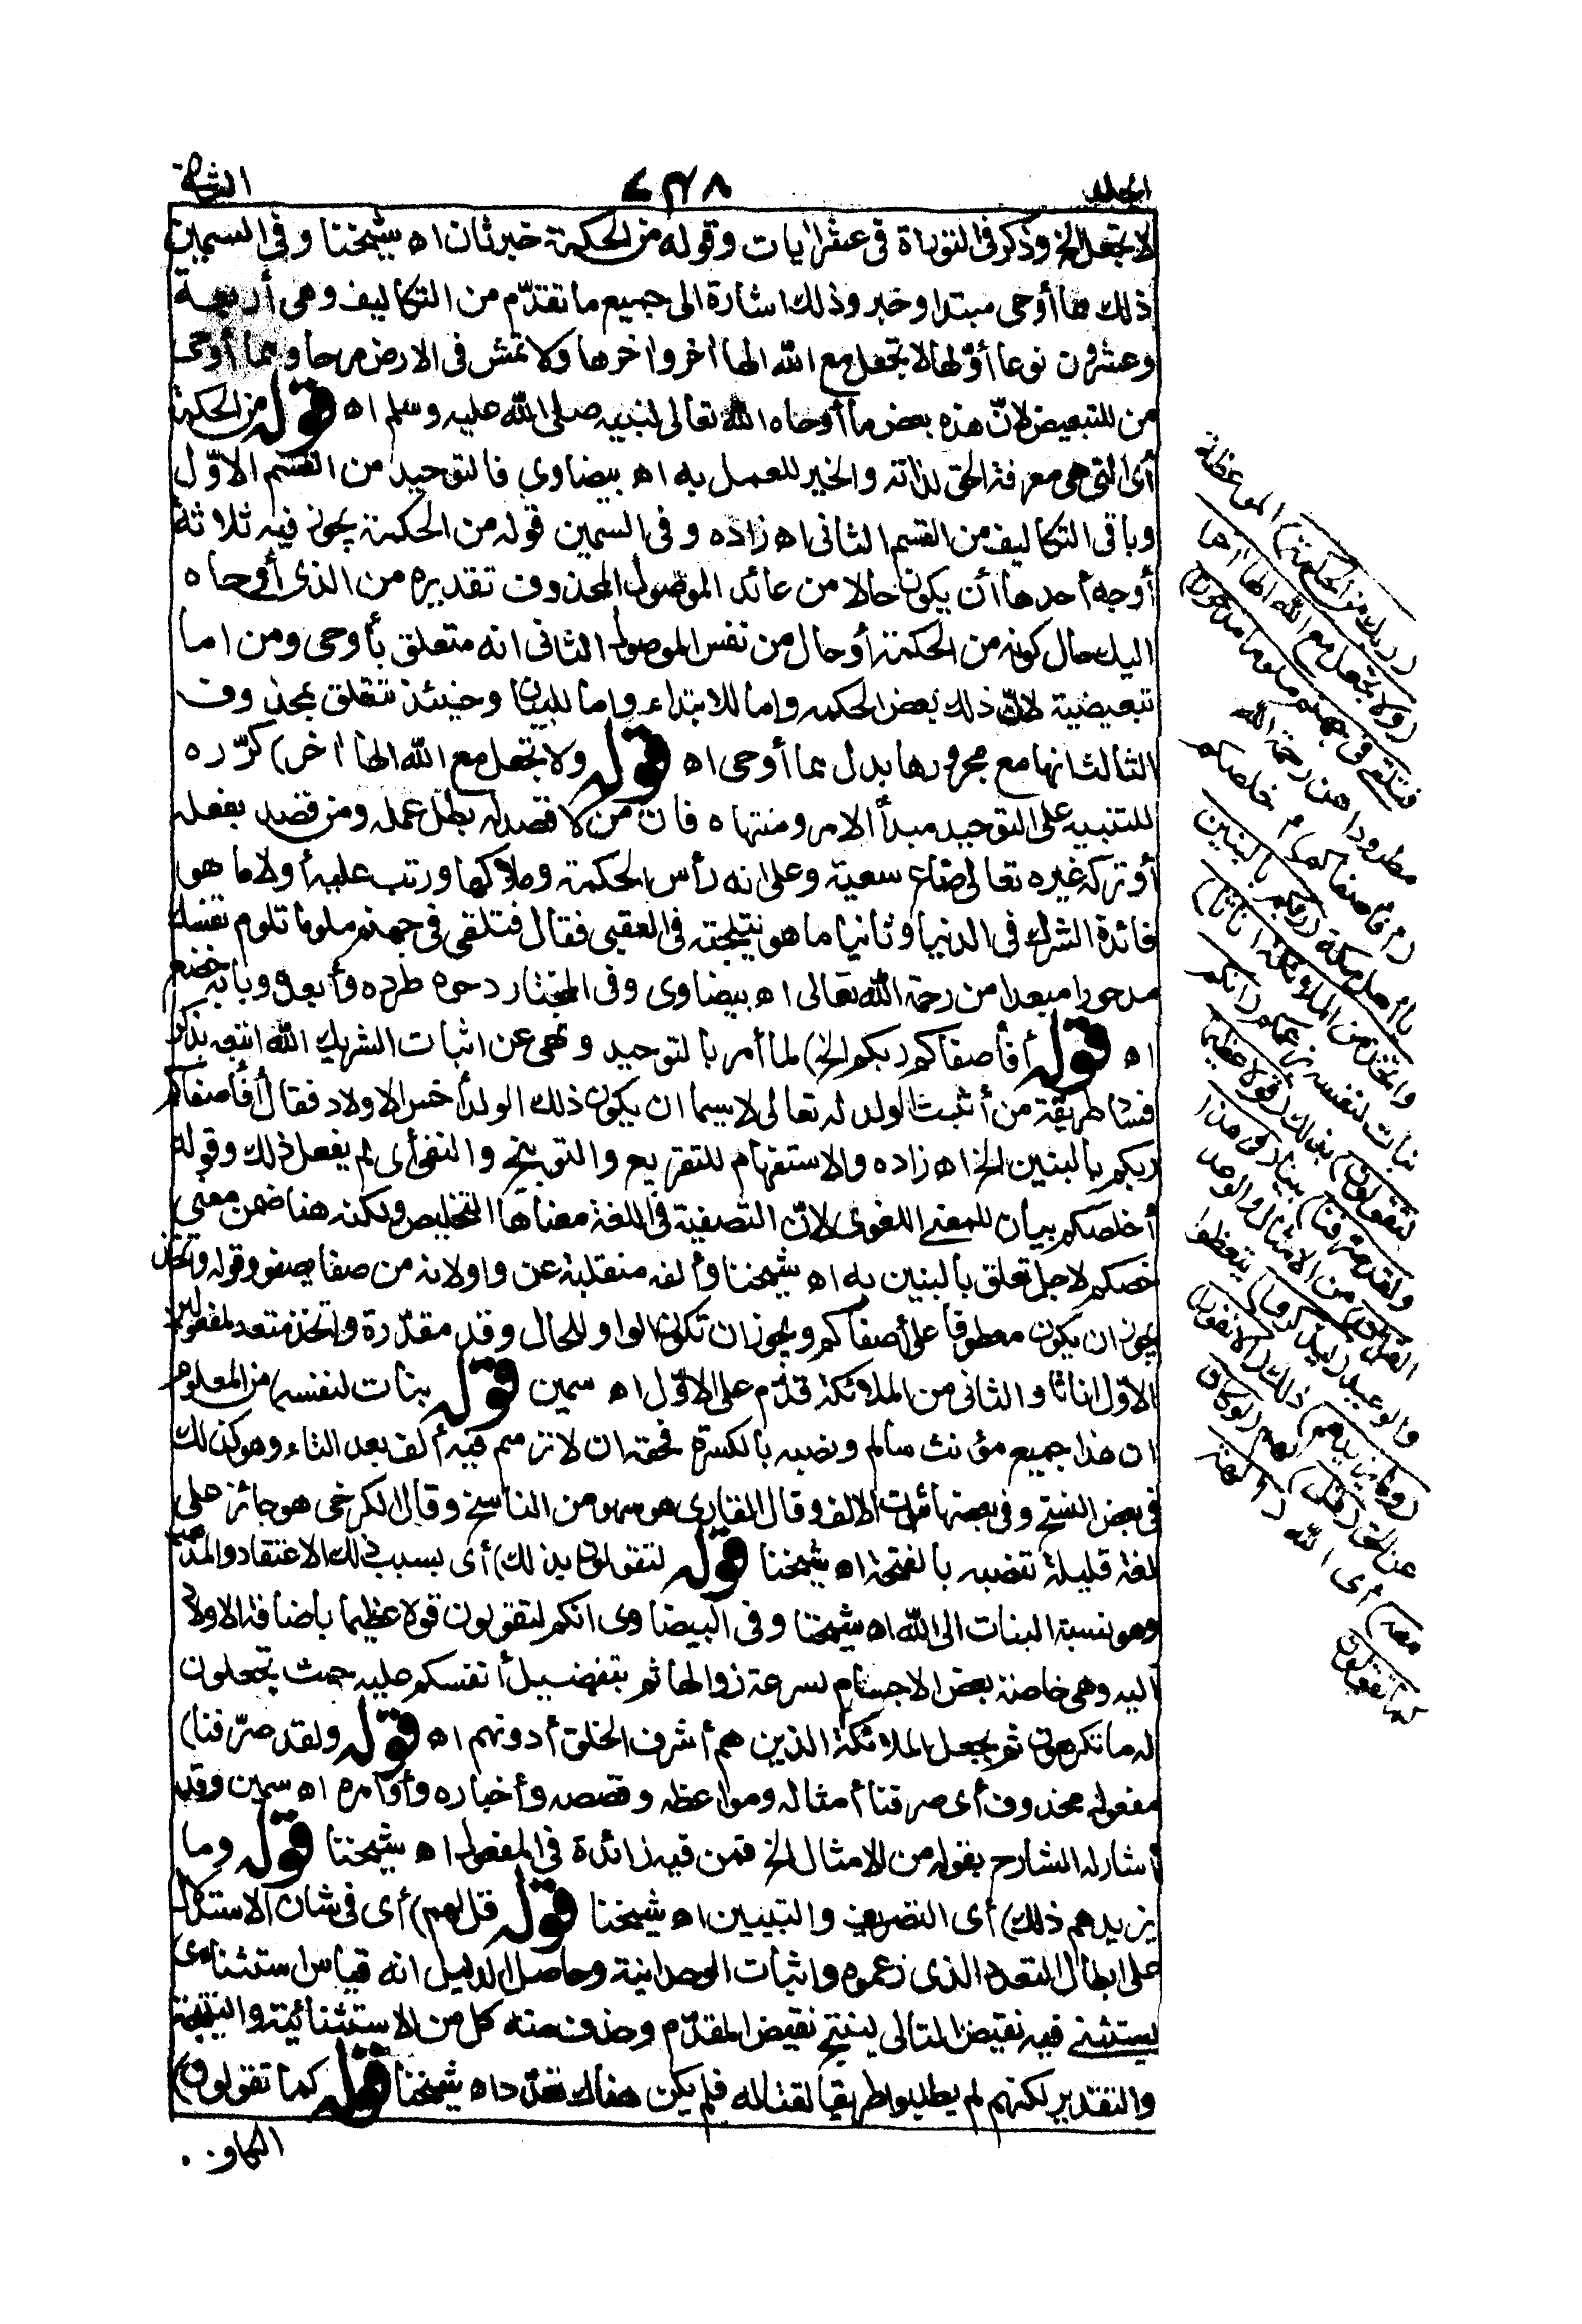 الجلد
٢٣٨
الثانى
لا تجعل الخ وذكر فى التوراة فى عشر اٰيات وقوله من الحكمة خبر ثان اه شيخنا وفى السمين
ذلك مما أوحى مبتدا وخبر وذلك اشارة الى جميع ما تقدّم من التكاليف وهى أربعة
وعشرون نوعا أوّلها لا تجعل مع الله الها اٰخر واٰخرها ولا تمش فى الارض مرحا ومما أوحى
من للتبعيض لانّ هذه بعض ما أوحاه الله تعالى لنبيه صلى الله عليه وسلم اه قوله من الحكمة
أى التى هى معرفة الحق لذاته والخير للعمل به اه بيضاوى فالتوحيد من القسم الاوّل
وباقى التكاليف من القسم الثانى اه زاده وفى السمين قوله من الحكمة يجوز فيه ثلاثة
أوجه أحدها أن يكون حالا من عائد الموصول المحذوف تقديره من الذى أوحاه
اليك حال كونه من الحكمة أو حال من نفس الموصول الثانى انه متعلق بأوحى ومن اما
تبعيضية لانّ ذلك بعض الحكمه واما للابتداء واما للبيان وحينئذ تتعلق بمحذوف
الثالث انها مع مجرورها بدل مما أوحى اه قوله ولا تجعل مع الله الها اٰخر) كرّره
للتنبيه على التوحيد مبدأ الامر ومنتهاه فان من لا قصد له بطل عمله ومن قصد بفعله
أو تركه غيره تعالى ضاع سعية وعلى انه رأس الحكمة وملاكها ورتب عليه أولا ما هو
فائدة الشرك فى الدنيا وثانيا ما هو نتيجته فى العقبى فقال فتلقى فى جهنم ملوما تلوم نفسك
مدحورا مبعدا من رحمة الله تعالى اه بيضاوى وفى المختار دحره طرده وأبعده وبابه خضع
اه قوله أفأصفاكم ربكم الخ) لما أمر بالتوحيد ونهى عن اثبات الشريك الله اتبعه بذكر
فساد طريقة من أثبت الولد له تعالى لاسيما ان يكون ذلك الولد أخس الاولاد فقال أفأصفاكم
ربكم بالبنين الخ اه زاده والاستفهام للتقريع والتوبيخ والنفى أى لم يفعل ذلك وقوله
أخلصكم بيان للمعنى اللغوى لانّ التصفية فى اللغة معناها التخليص ولكنه هنا ضمن معنى
خصكم لاجل تعلق بالبنين به اه شيخنا وألفه منقلبة عن واو لانه من صفا يصفو وقوله واتخذ
يجوز ان يكون معطوفا على أصفاكم ويجوز ان تكون الواو للحال وقد مقدّرة واتخذ متعد لمفعولين
الاوّل اناثا والثانى من الملائكة قدّم على الاوّل اه سمين قوله بنات لنفسه) من المعلوم
ان هذا جميع مؤنث سالم ونصبه بالكسرة فحقه ان لا ترسم فيه ألف بعد التاء وهو كذلك
فى بعض النسخ وفى بعضها اثبات الالف وقال القارى هو سهو من الناسخ وقال الكرخى هو جائز على
لغة قليلة تنصبه بالفتحة اه شيخنا قوله لتقولون بذلك) أى بسبب ذلك الاعتقاد والمذهب
وهو نسبة البنات الى الله اه شيخنا وفى البيضاوى انكم لتقولون قولا عظيما باضافة الاولاد
اليه وهى خاصة بعض الاجسام لسرعة زوالها ثم بتفضيل أنفسكم عليه حيث تجعلون
له ما تكرهون ثم بجعل الملائكة الذين هم أشرف الخلق أدونهم اه قوله ولقد صرّفنا)
مفعوله محذوف أى صرفنا أمثاله ومواعظه وقصصه وأخباره وأوامره اه سمين وقد
أشار له الشارح بقوله من الامثال الخ فمن فيه زائدة فى المفعول اه شيخنا قوله وما
يزيدهم ذلك) أى التصريف والتبيين اه شيخنا قوله قل لهم) أى فى شان الاستدلال
على ابطال التعدد الذى زعموه واثبات الوحدانية وحاصل الدليل انه قياس استثنائى
يستثنى فيه نقيض التالى لينتج نقيض المقدّم وحذف منه كل من الاستثنائية والنتيجة
والتقدير لكنهم لم يطلبوا طريقا لقتاله فلم يكن هناك تعدّد اه شيخنا قوله كما تقولون)
ربك من الحكمة) الموعظة
(ولا تجعل مع الله الها اٰخر
فتلقى فى جهنم ملوما مدحورا)
مطرودا من رحمة الله
(أفأصفاكم) خلصكم
يا أهل مكة (ربكم بالبنين
واتخذ من الملائكة اناثا)
بنات لنفسه بزعمكم (انكم
لتقولون) بذلك (قولا عظيما
ولقد صرفنا) بينا (فى هذا
القراٰن) من الامثال والوعد
والوعيد (ليذكروا) يتعظوا
(وما يزيدهم) ذلك (الا نفورا)
عن الحق (قل) لهم (لو كان
معه) أى الله (اٰلهة
كما تقولون